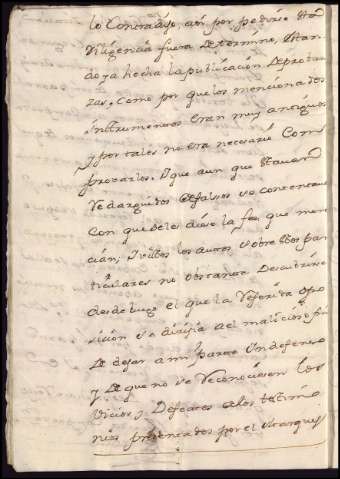 lo Contradijo, assi por pedirse esta
diligencia fuera de termino, estan
do ya hecha la publicacion de proban
zas, Como por que los mencionados
instrumentos eran muy antiguos
y por tales no era necesario Com
provarlos. y que aun que estavan
redarguidos de falsos se contentava
con que se les diese la fee que mere
cian; y vistos los autos, sobre estos par
ticulares no obstante descubrirse
desde luego el que la referida opo
sicion se dirijia al malicioso fin
de dejar a mi parte Yndefenso
y de que no se reconociesen los
vicios y defectos de los testimo
nios presentados por el Marques